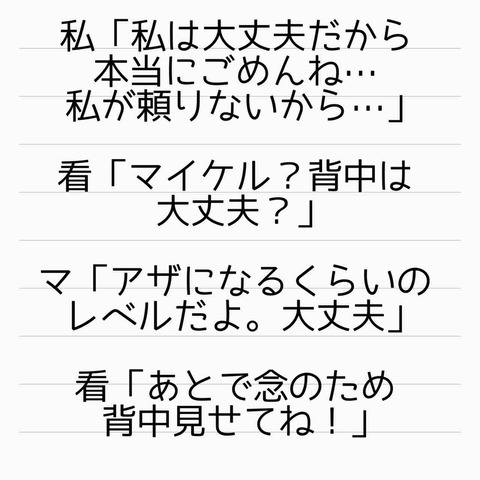 私「私は大丈夫だから
本当にごめんね…
私が頼りないから…」
看「マイケル？背中は
大丈夫？」
マ「アザになるくらいの
レベルだよ。大丈夫」
看「あとで念のため
背中見せてね！」